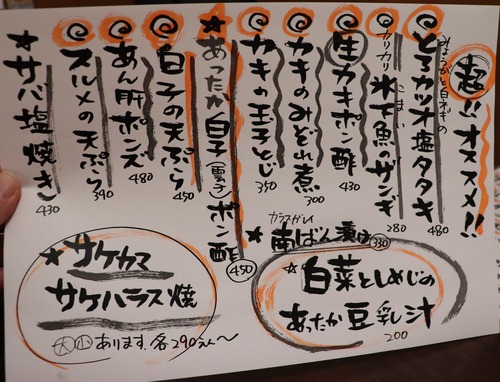 超!!オススメ!!
みょうがと白ネギの
とろカツオ塩タタキ 480
カリカリ
氷下魚のザンギ 280
こまい
生カキポン酢 430
カキのみぞれ煮 300
カキの玉子とじ 350
★あったか白子(雲子)ポン酢 450
白子の天ぷら 450
あん肝ポンズ 480
スルメの天ぷら 390
★サバ塩焼き 430
カラスガレイ
★南ばん漬け 330
★白菜としめじの
あったか豆乳汁
200
★サケカマ
サケハラス焼
大小あります。各290えん〜